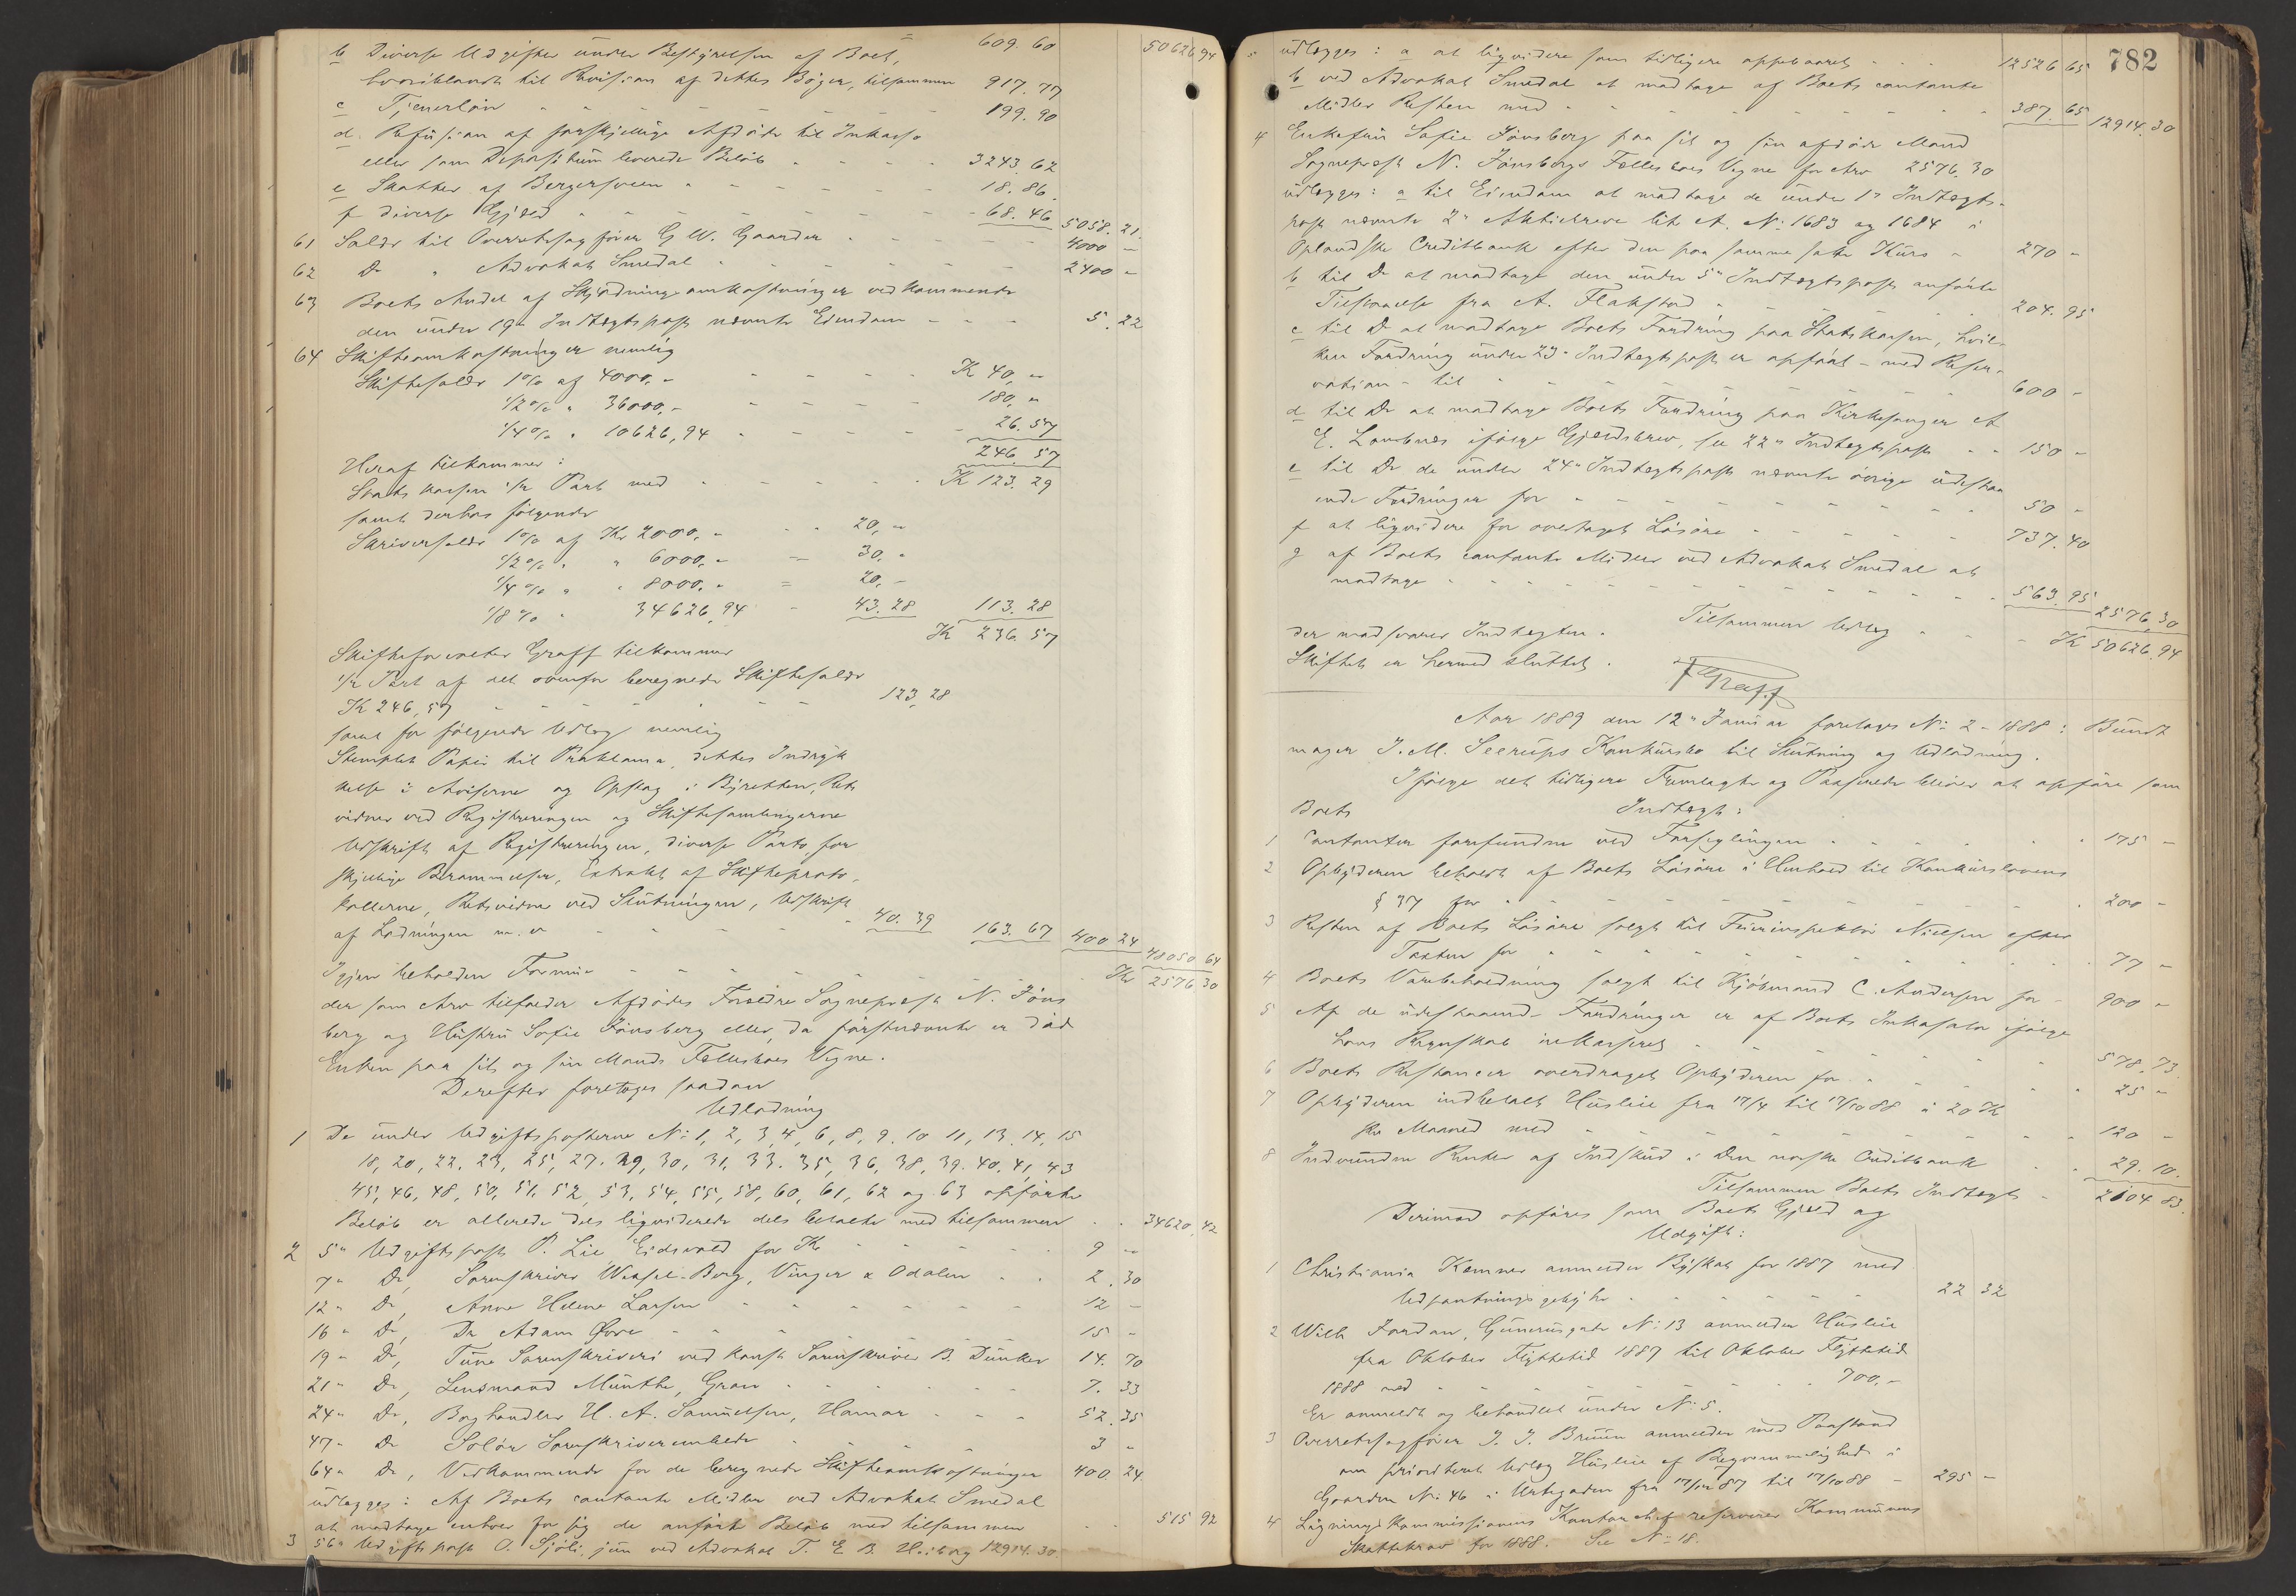 b Diverse Udgifter under Bestyrelsen af Boet, 609.60 50626 94
hvoriblandt til Revision af dettes Bøger, tilsammen 917.77
c Tjenerløn 199.90
d. Refusion af forskjellige Afdøde til Inkasso
eller som Depositum leverede Beløb 3243.62
e Skatter af Bergersveen 18.86
f diverse Gjæld 68.46 5058.21.
61 Salær til Overretssagfører G. W. Gaarder 4000 -
62 Do " Advokat Smedal 2400 -
63 Boets Andel af Skjødningsomkostninger vedkommende
den under 19de Indtægtspost nævnte Eiendom 5.22
64 Skifteomkostninger nemlig
Skiftesalær 1% af 4000,- Kr 40,-
1/2% " 36000,- 180,-
1/4% " 10626,94 26.57
246.57
Heraf tilkommer:
Stats kassen 1/2 Part med Kr 123.29
samt derhos følgende
Skriversalær 1% af Kr 2000,- 20,-
1/2% " " 6000,- 30,-
1/4% " " 8000,- 20,-
1/8% " 34626,94 43.28 113.28
Kr 236.57
Skifteforvalter Graff tilkommer
1/2 Part af det ovenfor beregnede Skiftesalær
Kr 246,57 123,28
samt for følgende Udlæg nemlig
Stemplet Papir til Proklama, dettes Indryk
kelse i Aviserne og Opslag i Byretten, Rets
vidner ved Registreringen og Skiftesamlingerne
Udskrift af Registreringen, diverse Porto, for
skjellige Berammelser, Extrakt af Skifteproto-
kollerne, Retsvidne ved Slutningen, Udskrift
af Lodningen m. v 40.39 163.67 400 24 48050 64
Igjen beholden Formue Kr 2576 30
der som Arv tilfalder Afdødes Forældre Sogneprest N. Jøns
berg og Hustru Sofie Jønsberg eller, da førstnævnte er død
Enken paa sit og sin Mands Fællesboes Vegne.
Derefter foretages saadan
Udlodning
1 De under Udgiftsposterne No: 1, 2, 3, 4, 6, 8, 9. 10 11, 13. 14, 15
18, 20, 22. 23, 25, 27. 29, 30, 31, 33. 35, 36, 38, 39. 40. 41, 43
45, 46, 48, 50, 51, 52, 53, 54, 55, 58, 60, 61, 62 og 63 opførte
Beløb er allerede dels ligviderede dels betalte med tilsammen 34620,42
2 5te Udgiftspost P. Lie Eidsvold for Kr 9 -
7de Do, Sorenskriver Wessel-Berg, Vinger & Odalen 2.30
12 " Do, Anne Helene Larsen 12 -
16 " Do, Dr Adam Øvre 15 -
19 " Do, Tune Sorenskriveri ved konst Sorenskriver B. Dunker 14.70
21 " Do, Lensmand Munthe, Gran 7.33
24 " Do, Boghandler H. A. Samuelsen, Hamar 52.35
47 " Do Solør Sorenskriverembede 3 -
64 " Do, Vedkommende for de beregnede Skifteomkostninger 400 24
udlægges: Af Boets contante Midler ved Advokat Smedal
at modtage enhver for sig de anførte Beløb med tilsammen 515 92
3 56de Udgifts post O. Sjøli jun ved Advokat T. E. B. Heiberg 12914.30
782
udlægges: a at ligvidere som tidligere oppebaaret 12526 65
b ved Advokat Smedal at modtage af Boets contante
Midler Resten med 387.65 12914.30
4 Enkefru Sofie Jønsberg paa sit og sin afdøde Mand
Sogneprest N. Jønsbergs Fælles boes Vegne for Arv 2576.30
udlægges: a til Eiendom at modtage de under 1ste Indtægts-
post nævnte 2de Aktiebreve lit A. No: 1683 og 1684 i
Oplandske Creditbank efter den paa samme satte Kurs 270 -
b til Do at modtage den under 5te Indtægtspost anførte
Tilstaaelse fra A. Flakstad 204.95
c til Do at modtage Boets Fordring paa Statskassen, hvil-
ken Fordring under 23de Indtægtspost er opført - med Reser-
vation - til 600 -
d til Do at modtage Boets Fordring paa Kirkesanger A
E. Lombnæs ifølge Gjældsbrev, se 22de Indtægtspost 150 -
e til Do de under 24de Indtægtspost nævnte øvrige udestaa
ende Fordringer for 50 -
f at ligvidere for overtaget Løsøre 737.40
g af Boets contante Midler ved Advokat Smedal at
modtage 563.95 2576,30
Tilsammen Udlæg Kr 50626.94
der modsvarer Indtægten.
Skiftet er hermed sluttet.
Graff
Aar 1889 den 12te Januar foretages No 2 - 1888: Bundt
mager J. M. Seerups Konkursbo til Slutning og Udlodning.
Ifølge det tidligere Fremlagte og Passerede bliver at opføre som
Boets Indtægt:
1 Contanter forefundne ved Forseglingen 175 -
2 Opbyderen beholdt af Boets Løsøre i Henhold til Konkurslovens
§ 37 for 200 -
3 Resten af Boets Løsøre solgt til Nielsen efter
Taxten for 77 -
4 Boets Varebeholdning solgt til Kjøbmand C. Andersen for 900 -
5 Af de udestaaende Fordringer er af Boets Inkasator ifølge
hans Regnskab inkasseret 578.73
6 Boets Restancer overdraget Opbyderen for 25 -
7 Opbyderen indbetalt Husleie fra 17/4 til 17/10 88 à 20 Kr
pr Maaned med 120 -
8 Indvundne Renter af Indskud i Den norske Creditbank 29.10.
Tilsammen Boets Indtægt 2104 83.
Derimod opføres som Boets Gjæld og
Udgift:
1 Christiania Kemner anmelder Byskat for 1887 med
Udpantningsgebyr 22 32
2 Wilh Jordan, Gunerusgade No: 13 anmelder Husleie
fra Oktober Flyttetid 1887 til Oktober Flyttetid
1888 med 700.-
Er anmeldt og behandlet under No 5.
3 Overretssagfører J. J. Bruun anmelder med Paastand
om prioriteret Udlæg Husleie af Begvemmelighed i
Gaarden No: 46 i Urtegaden fra 17/10 87 til 17/10 88 295 -
4 Ligningskommissionens Kontorchef reserverer Kommunens
Skattekrav for 1888. Se No 18.